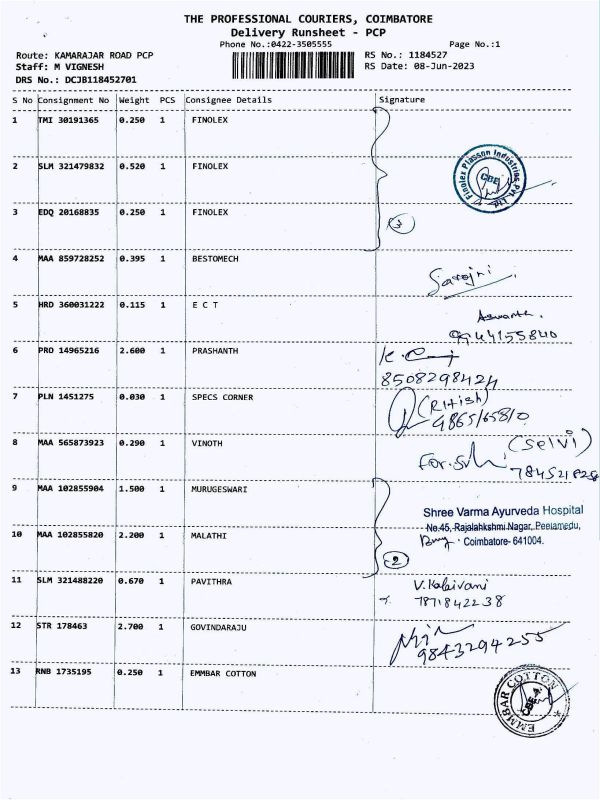 THE PROFESSIONAL COURIERS, COIMBATORE
Delivery Runsheet - PCP
Phone No.:0422-3505555 Page No.:1
Route: KAMARAJAR ROAD PCP RS No.: 1184527
Staff: M VIGNESH RS Date: 08-Jun-2023
DRS No.: DCJB118452701
S No Consignment No Weight PCS Consignee Details Signature
1 TMI 30191365 0.250 1 FINOLEX
2 SLM 321479832 0.520 1 FINOLEX
Finolex Plasson Industries Pvt. Ltd.
CBE
3 EDQ 20168835 0.250 1 FINOLEX
3
4 MAA 859728252 0.395 1 BESTOMECH
Sarojni
5 HRD 360031222 0.115 1 E C T
Aswanth.
9944155840
6 PRO 14965216 2.600 1 PRASHANTH
8508298424
7 PLN 1451275 0.030 1 SPECS CORNER
(Ritish)
8 MAA 565873923 0.290 1 VINOTH
(Selvi)
For.
9 MAA 102855904 1.500 1 MURUGESWARI
Shree Varma Ayurveda Hospital
No.45, Rajalahkshmi Nagar, Peelamedu,
Coimbatore- 641004.
10 MAA 102855820 2.200 1 MALATHI
2
11 SLM 321488220 0.670 1 PAVITHRA
V. Kalaivani
7871842238
12 STR 178463 2.700 1 GOVINDARAJU
9843294255
13 RNB 1735195 0.250 1 EMMBAR COTTON
EMMBAR COTTON
CBE-4